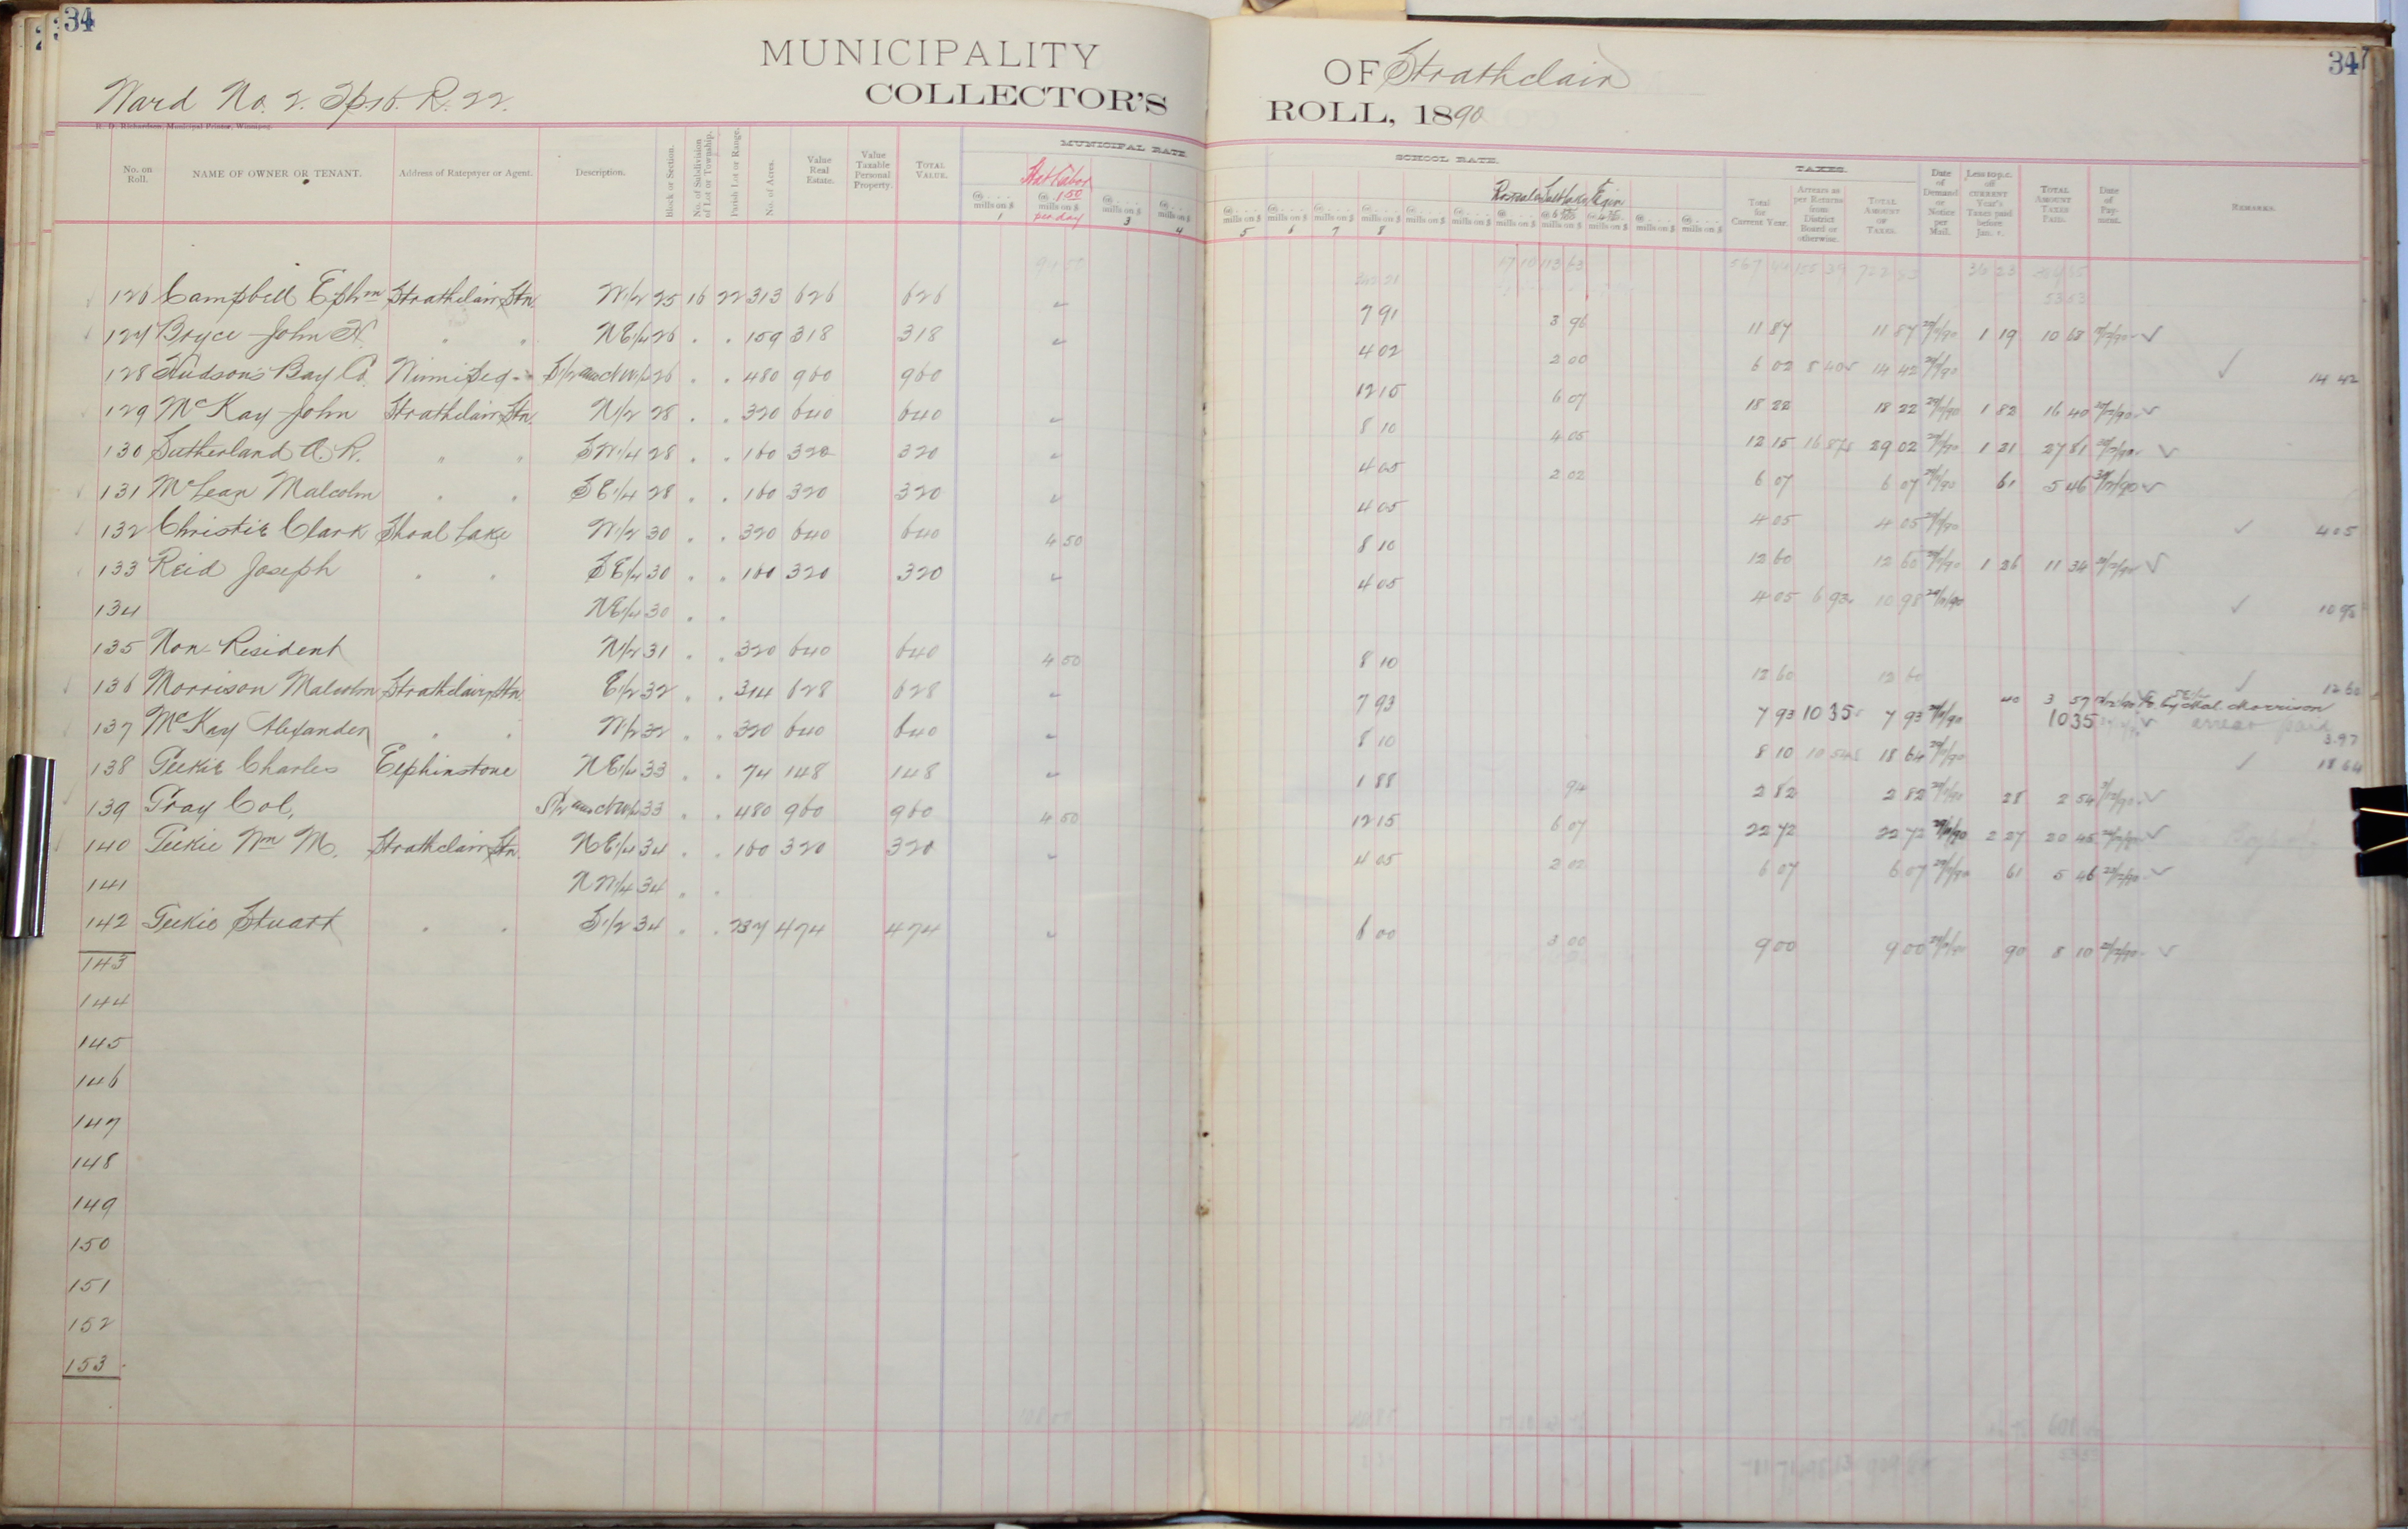 34
34
MUNICIPALITY OF Strathclair
Ward No. 2. Tp. 16. R. 22.
COLLECTOR'S ROLL, 1890
R. D. Richardson, Municipal Printer, Winnipeg.
MUNICIPAL RATE. SCHOOL RATE. TAXES.
No. on Roll. NAME OF OWNER OR TENANT. Address of Ratepayer or Agent. Description. Block or Section. No. of Subdivision of Lot or Township. Parish Lot or Range. No. of Acres. Value Real Estate. Value Taxable Personal Property. TOTAL VALUE. Stat Labor 1.50 per day Total for Current Year. Arrears as per Returns from District Board or otherwise. TOTAL AMOUNT OF TAXES. Date of Demand or Notice per Mail. Less 10 p.c. off CURRENT Year's Taxes paid before Jan. 1. TOTAL AMOUNT TAXES PAID. Date of Payment. REMARKS.
mills on $ 1 mills on $ mills on $ 3 mills on $ 4 mills on $ 5 mills on $ 6 mills on $ 7 mills on $ 8 mills on $ mills on $ mills on $ mills on $ mills on $ mills on $ mills on $
126 Campbell Ephm Strathclair Stn. W1/2 25 16 22 313 626 626 7 91 3 96 11 87 11 87 29/11/90 1 19 10 68
127 Bryce John H. " " NE1/4 26 . . 159 318 318 4 02 2 00 6 02 8 40 14 42 29/11/90 14 42
128 Hudson's Bay Co. Winnipeg S1/2 and NW1/4 26 . . 480 960 960 12 15 6 07 18 22 18 22 29/11/90 1 82 16 40
129 McKay John Strathclair Stn. N1/2 28 . . 320 640 640 8 10 4 05 12 15 16 87 29 02 29/11/90 1 21 27 81
130 Sutherland A. R. " " SW1/4 28 . . 160 320 320 4 05 2 02 6 07 6 07 29/11/90 61 5 46
131 McLean Malcolm " " SE1/4 28 . . 160 320 320 4 05 4 05 4 05 29/11/90 4 05
132 Christie Clark Shoal Lake W1/2 30 . . 320 640 640 4 50 8 10 12 60 12 60 29/11/90 1 26 11 34
133 Reid Joseph " " SE1/4 30 . . 160 320 320 4 05 4 05 6 93 10 98 29/11/90 10 98
134 NE1/4 30 . .
135 Non-Resident N1/2 31 . . 320 640 640 4 50 8 10 12 60 12 60 12 60
136 Morrison Malcolm Strathclair Stn. E1/2 32 . . 314 628 628 7 93 7 93 10 35 7 93 29/11/90 40 3 57 by Mal. Morrison
10 35 arrears paid 3.97
137 McKay Alexander " " W1/2 32 . . 320 640 640 8 10 8 10 10 54 18 64 29/11/90 18 64
138 Geekie Charles Elphinstone NE1/4 33 . . 74 148 148 1 88 94 2 82 2 82 29/11/90 28 2 54
139 Gray Col. S1/2 and NW1/4 33 . . 480 960 960 4 50 12 15 6 07 22 72 22 72 29/11/90 2 27 20 45
140 Geekie Wm M. Strathclair Stn. NE1/4 34 . . 160 320 320 4 05 2 02 6 07 6 07 29/11/90 61 5 46
141 NW1/4 34 . .
142 Geekie Stuart " " S1/2 34 . . 237 474 474 6 00 3 00 9 00 9 00 29/11/90 90 8 10
143
144
145
146
147
148
149
150
151
152
153